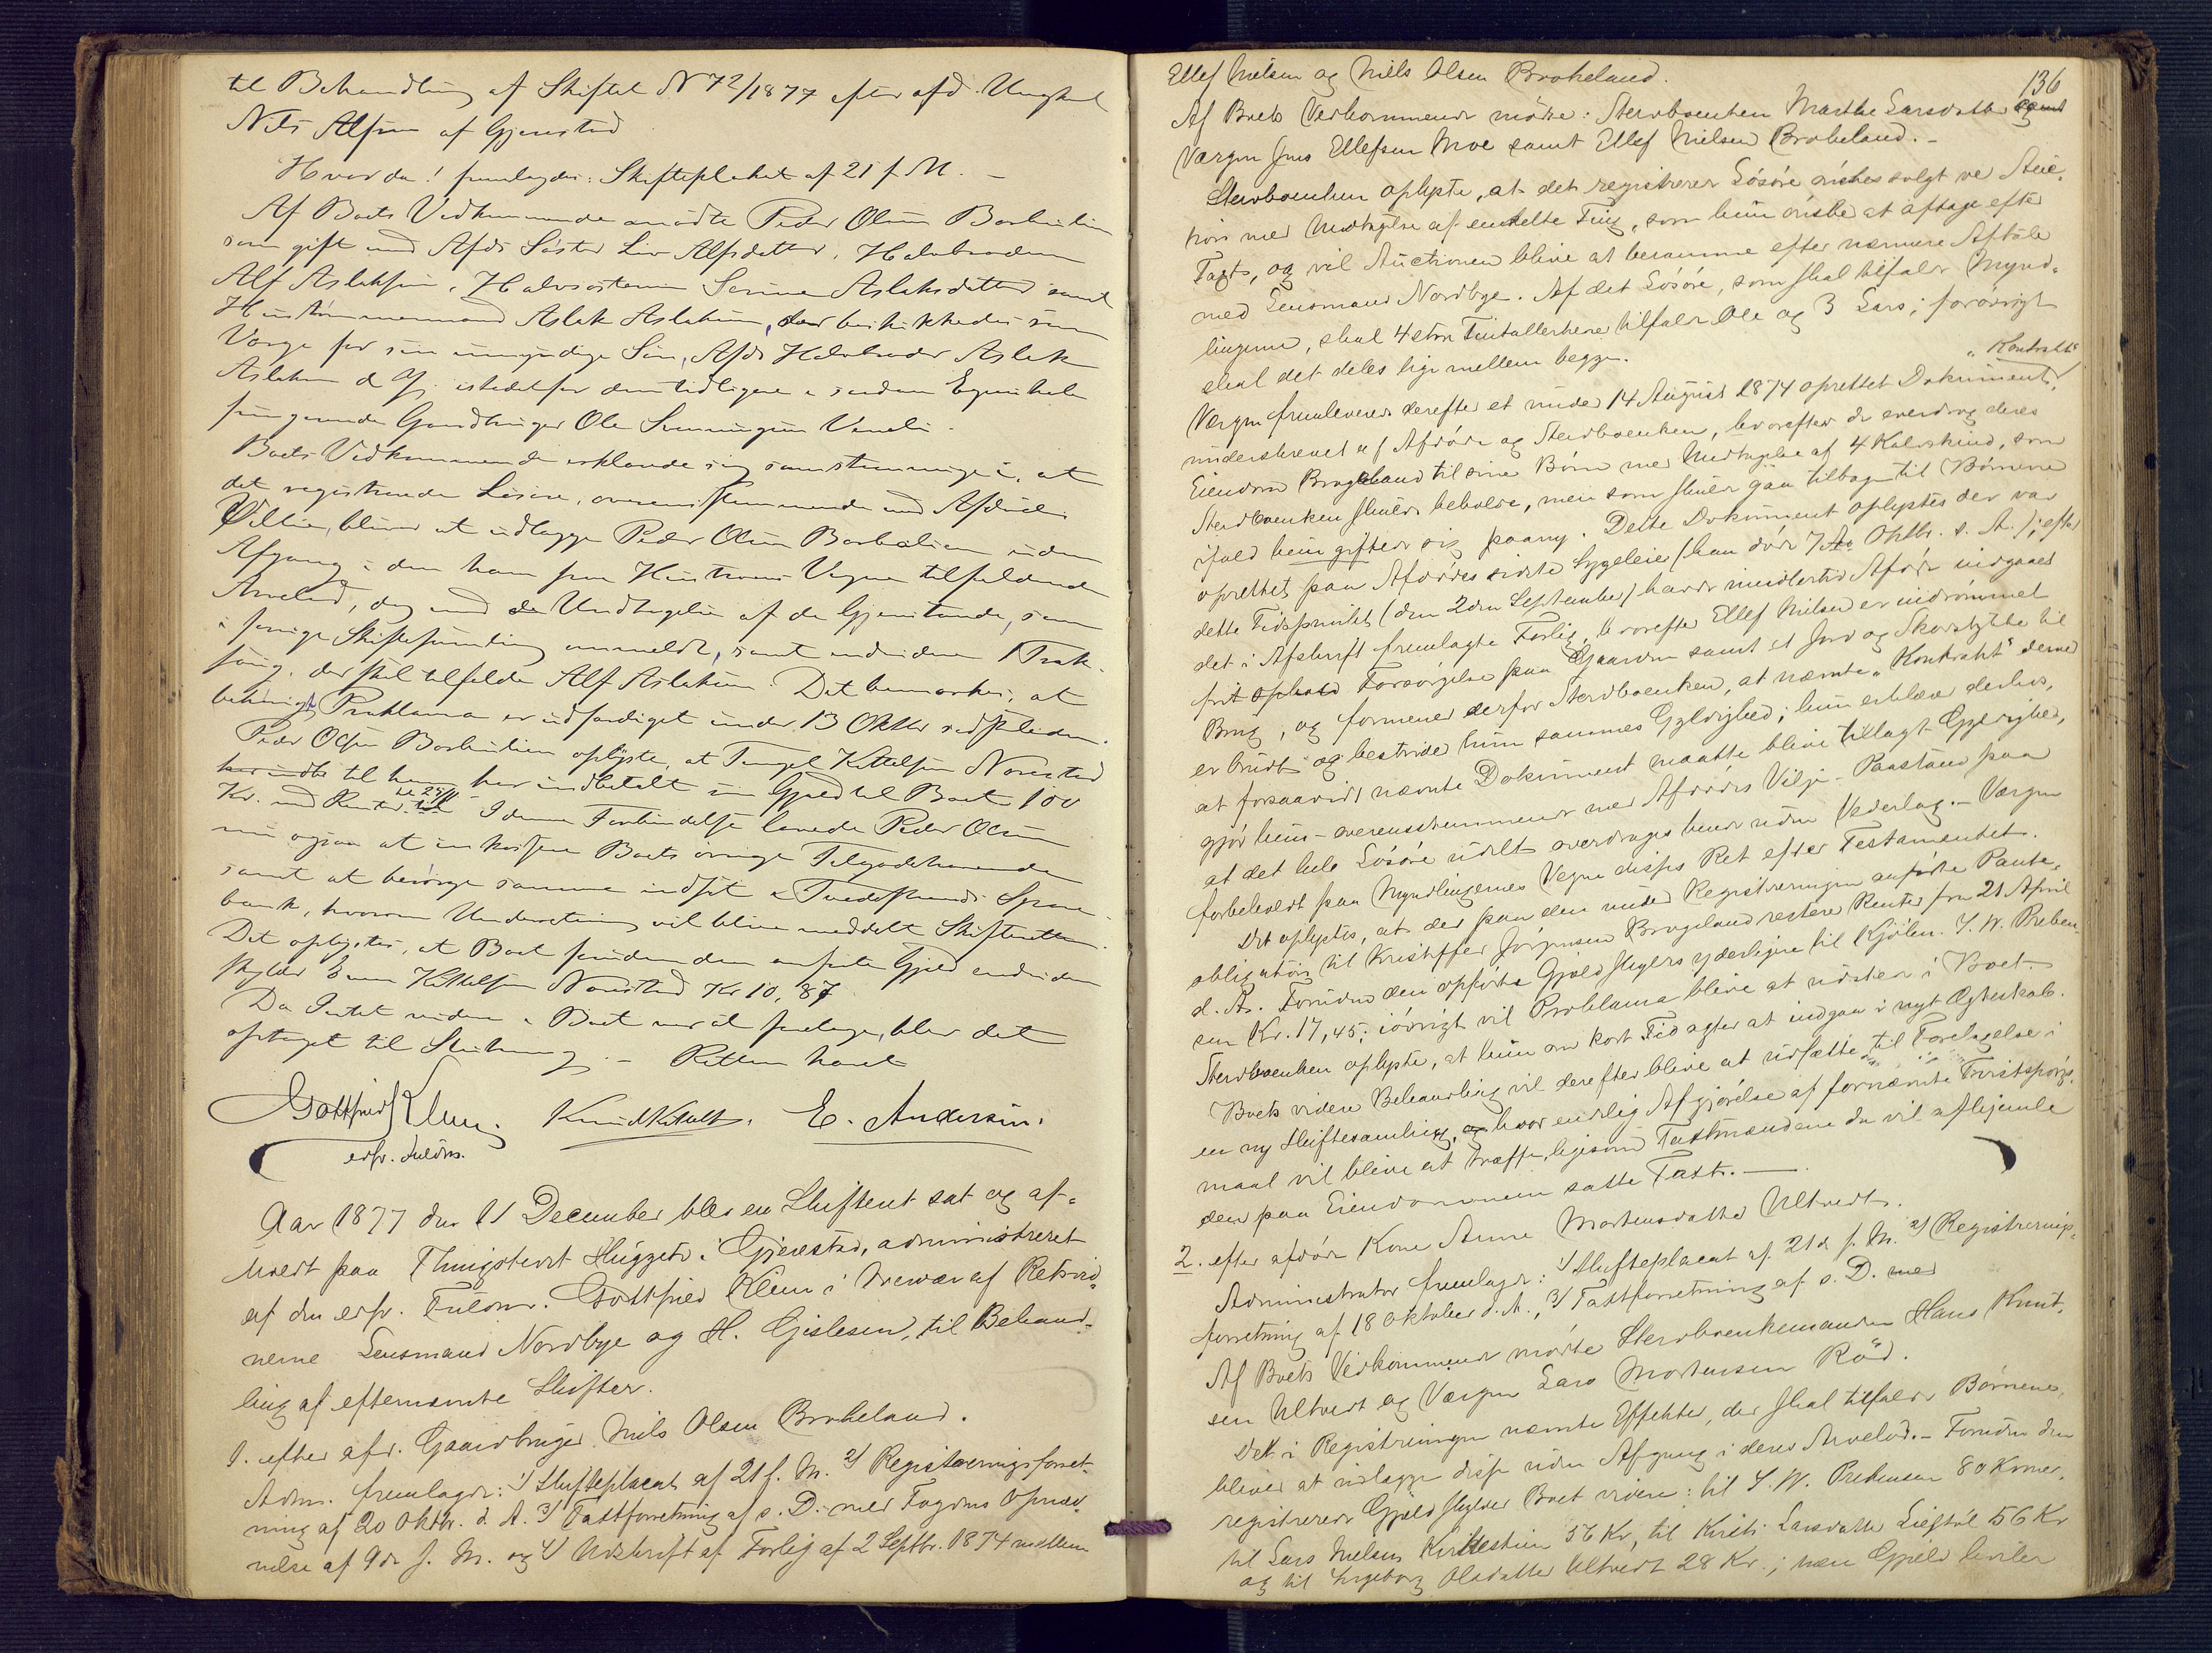 til Behandling af Skiftet N 72/1877 efter afd. Ungkarl
Nils Alfsen af Gjerestad
Hvorda! fremlagdes: Skifteplakat af 21 f. M. –
Af Boets Vedkommende mødte Peder Olsen Barbulien
som gift med Afds Søster Liv Alfsdatter, Halvbroderen
Alf Aslaksen, Halvsøsteren Aslaksdatter samt
Aslak Aslaksen, der beskikkedes som
Værge for sin umyndige Søn, Afds Halvbroder Aslak
Aslaksen d Y, istedetfor den tidligere i saadan Egenskab
fungerende Gaardbruger Ole
Boets Vedkommende erklærede sig samstemmige i, at
det registrerede Løsøre, overensstemmende med Afdødes
Villie, bliver at udlægge Peder Olsen Barbulien uden
Afgang i den ham paa Hustrues Vegne tilfaldende
Arvelod, dog med Undtagelse af de Gjenstande, som
i forrige Skiftesamling anmeldt, samt endvidere 1
der skal tilfalde Alf Aslaksen. Det bemærkes, at
Proklama er udfærdiget under 13 Oktbr
Peder Olsen Barbulien oplyste, at Kittelsen
til ham har indbetalt sin Gjæld til Boet 100
Kr. med Renter. I denne Forbindelse lovede Peder Olsen
nu ogsaa at inkassere Boets øvrige Tilgodehavende
samt at besørge samme indsat i Tvedestrands Spare-
bank, hvorom Underretning vil blive meddelt Skifteretten.
Det oplystes, at Boet foruden den anførte Gjæld endvidere
skylder Even Kittelsen Kr 10,87
Da Intet videre i Boet var at foretage, blev det
optaget til Slutning. – Retten hævet
Gottfried Klem. E. Andersen.
edsv. Fuldm.
Aar 1877 den 11 December blev en Skifteret sat og af-
holdt paa Thingstedet Huggeto i Gjerestad, administreret
af den edsv. Fuldm. Gottfried Klem i Overvær af Retsvid-
nerne Lensmand Nordbye og H. Gislesen, til Behand-
ling af efternævnte Skifter.
1. efter afd. Gaardbruger Nils Olsen Brokeland.
Adm. fremlagde: 1) Skifteplacat af 21 f. M. 2) Registreringsforret-
ning af 20 Oktbr. d. A. 3) Taxtforretning af s. D. med Fogdens Opnæv-
nelse af 9de f. M. og 4) Udskrift af Forlig af 2 Septbr. 1874 mellem
136
Ellef Nielsen og Niels Olsen Brokeland.
Af Boets Vedkommende mødte: Stervboenken Marthe Larsdatter samt
Værgen Jens Ellefsen Moe samt Ellef Nielsen Brokeland. –
Stervboenken oplyste, at det registrerede Løsøre ønskes solgt ved Auc-
tion med Undtagelse af enkelte Ting, som hun ønsker at aftage efter
Taxt, og vil Auctionen blive at beramme efter nærmere Aftale
med Lensmand Nordbye. Af det Løsøre, som skal tilfalde Mynd-
lingerne, skal 4 store Tintallerkene tilfalde Ole og 3 Lars; forøvrigt
skal det deles lige mellem begge.
„Kontrakt“
Værgen fremleverede derefter et under 14 August 1874 oprettet Dokument,
underskrevet af Afdøde og Stervboenken, hvorefter de overdrog deres
Eiendom Brogeland til sine Børn med Undtagelse af 4 Kalvskind, som
Stervboenken skulde beholde, men som skulde gaa tilbage til Børnene
ifald hun gifter sig paany. Dette Dokument oplystes der var
oprettet paa Afdødes sidste Sygeleie (han døde 7 Oktbr. s. A.); efter
dette Tidspunkt (den 2den September) havde imidlertid Afdøde indgaaet
det i Afskrift fremlagte Forlig, hvorefter Ellef Nielsen er indrømmet
frit Ophold Forsørgelse paa Gaarden samt et Jord og Skovstykke til
Brug, og formener derfor Stervboenken, at nævnte „Kontrakt“ derved
er brudt og bestrider hun sammes Gyldighed; hun erklærede derhos,
at forsaavidt nævnte Dokument maatte blive tillagt Gyldighed,
gjør hun – overensstemmende med Afdødes Vilje – Paastand paa
at det hele Løsøre udelt overdrages hende uden Vederlag. – Værgen
forbeholdt paa Myndlingernes Vegne disses Ret efter Testamentet.
Det oplystes, at der paa den under Registreringen anførte Pante-
obligation til Kristoffer Jørgensen Brogeland resterer Renter fra 21 April
d. A. Foruden den opførte Gjæld skyldes yderligere til Kjøbm. J. W. Preben-
sen Kr. 17,45; iøvrigt vil Proklama blive at udstede i Boet.
Stervboenken oplyste, at hun om kort Tid agter at indgaa i nyt Ægteskab.
Boets videre Behandling vil derefter blive at udsætte til Foretagelse i
en ny Skiftesamling, hvor endelig Afgjørelse af fornævnte Tvistspørgs-
maal vil blive at træffe, ligesom Taxtmændene da vil afhjemle
den paa Eiendommen satte Taxt. –
2. efter afdøde Kone Anne Mortensdatter Ultvedt.
Administrator fremlagde: 1) Skifteplacat af 21de f. M. 2) Registrerings-
forretning af 18 Oktober d. A., 3) Taxtforretning af s. D. med
Af Boets Vedkommende mødte Stervboenkemanden Hans Knut-
sen Ultvedt og Værgen Lars Mortensen Rød.
Det i Registreringen nævnte Effekter, der skal tilfalde Børnene,
bliver at udlægge disse uden Afgang i deres Arvelod. – Foruden den
registrerede Gjæld skylder Boet videre: til J. W. Prebensen 80 Kroner,
til Lars Nielsen 56 Kr, til Kirsti Larsdatter 56 Kr
og til Ingeborg Olsdatter Ultvedt 28 Kr.; Gjæld